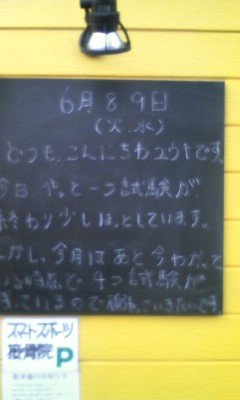 6月89日
(火.水)
どうも、こんにちわユウキです。
今日 や。と一つ試験が
終わり少しほ。としています。
しかし、今月はあと 今わか。て
いる時点で 4つ試験が
ま。ているので 頑張。ていきたいです。
スマートスポーツ
接骨院 P